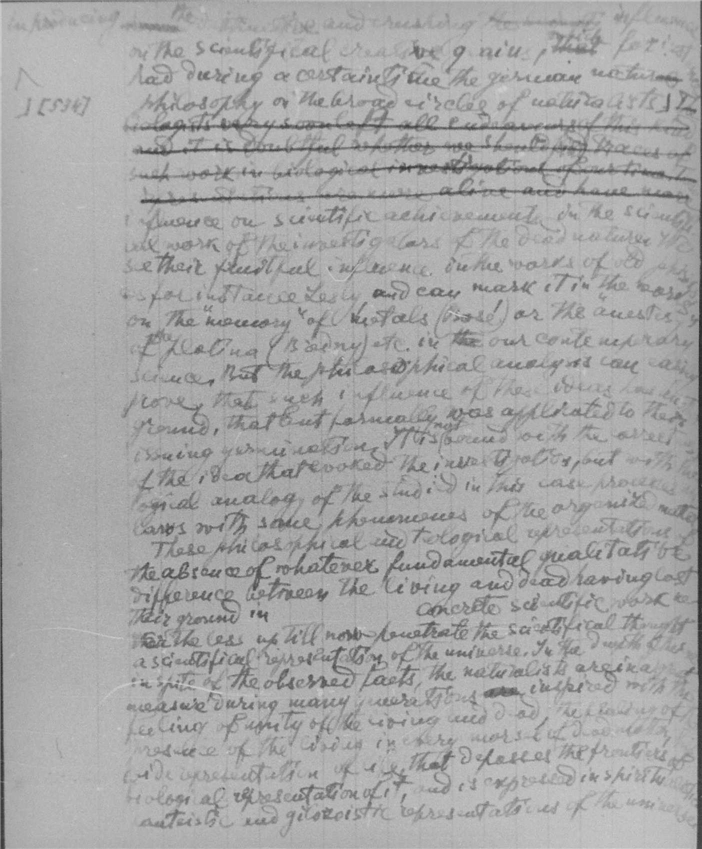 in producing the and crushing influence
on the scientifical creative gains, that for inst
had during a certain time the german natur
philosophy on the broad circles of naturalists
] [534]
biologists very soon left all endeavours of this kind
and it is doubtful whether we should find traces of
such work in biological investigations of our time.
representations are more alive and have more
influence on scientific achievements in the scientifi
cal work of the investigators of the dead nature. We
see their fruitful influence in the works of old
as for instance Lesly and can mark it in the works
on the "memory" of metals (Bose) or the "anestes
of the platina (Bredny) etc. in the our contemporary
science. But the philosophical analysis can easily
prove, that such influence of these ideas has
ground, that but formally was applicated to their
issuing germination. It is not bound with the
of the idea that evoked the investigation, but with the
logical analogy of the studied in this case processes
laws with some phenomenes of the organized matter
These philosophical and ological representations of
the absence of whatever fundamental qualitative
difference between the living and dead having lost
their ground in concrete scientific work
the less up till now penetrate the scientifical thought
a scientifical representation of the universe. In the depth of this
in spite of the observed facts, the naturalists are in a great
measure during many generations inspired with the
feeling of unity of the living and dead, the feeling of the
presence of the living in every morsel of dead nature
wide representation of life, that depasses the frontiers of
biological representation of it, and is expressed in spirits
panteistic and gilozoistic representations of the universe